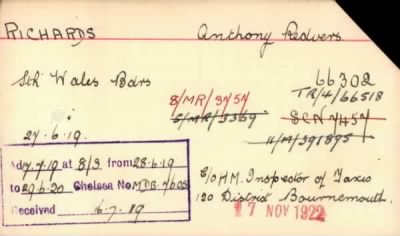 RICHARDS Anthony Redvers.
Sth Wales Bdrs 66302
TR/4/66518
8/MR/3757
5/MR/3369 SCN 7457
11/M/391895
27.6.19.
Ad 7.7.19 at 8/3 from 28.6.19
to 29.6.20 Chelsea No MDB
Received 6.7.19
C/o HM. Inspector of Taxes
120 District Bournemouth.
17 NOV 1922